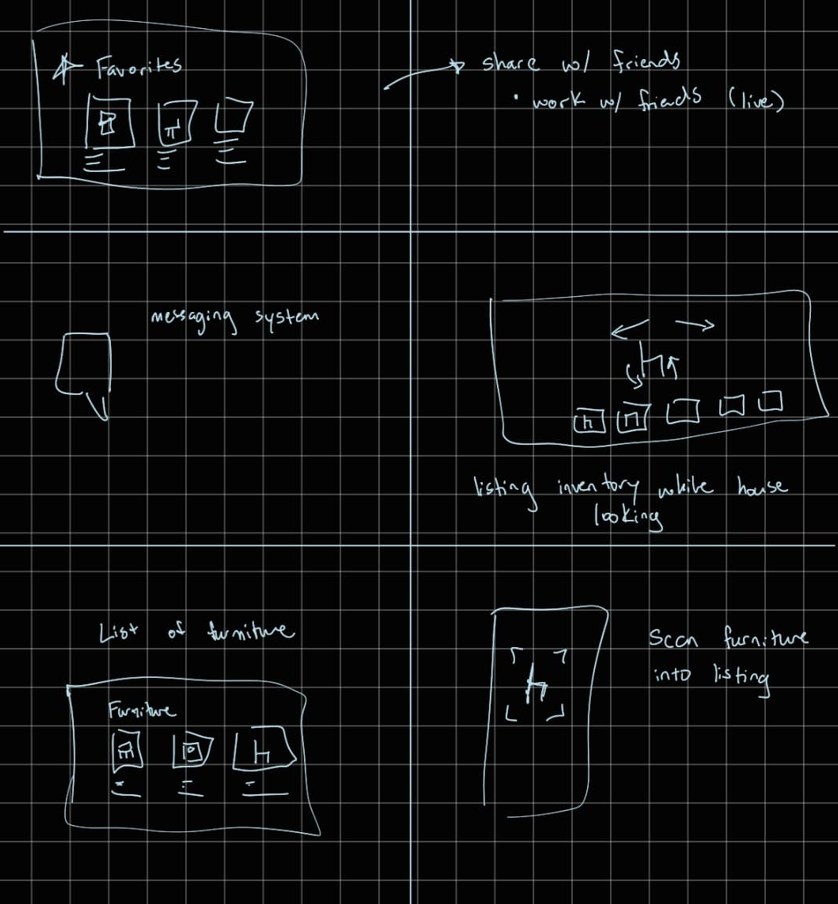 Favorites
share w/ friends
• work w/ friends (live)
messaging system
listing inventory while house
looking
List of furniture
Furniture
Scan furniture
into listing